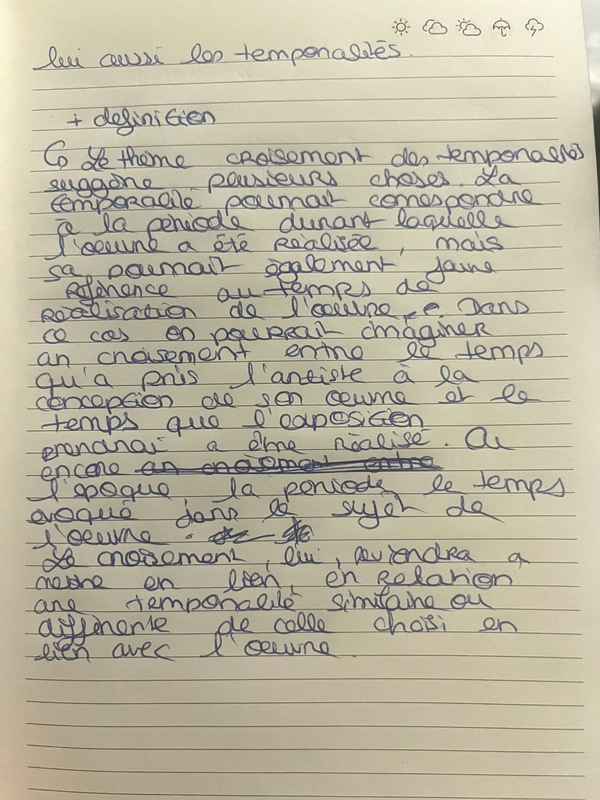 lui aussi les temporalités.
+ definition
↳ Le thème croisement des temporalités
suggère plusieurs choses. La
temporalité pourrait correspondre
a la période durant laquelle
l'oeuvre a été Réalisée, mais
sa pourrait également faire
Référence au temps de
Réalisation de l'oeuvre. Dans
ce cas on pourrait imaginer
un croisement entre le temps
qu'a pris l'artiste à la
conception de son oeuvre et le
temps que l'exposition
prendrai a être réalisé. Ou
encore un croisement entre
l'époque, la période le temps
évoqué dans le sujet de
l'oeuvre.
Le croisement, lui, reviendra a
mettre en lien, en Relation
une temporalité similaire ou
différente de celle choisi en
lien avec l'oeuvre.